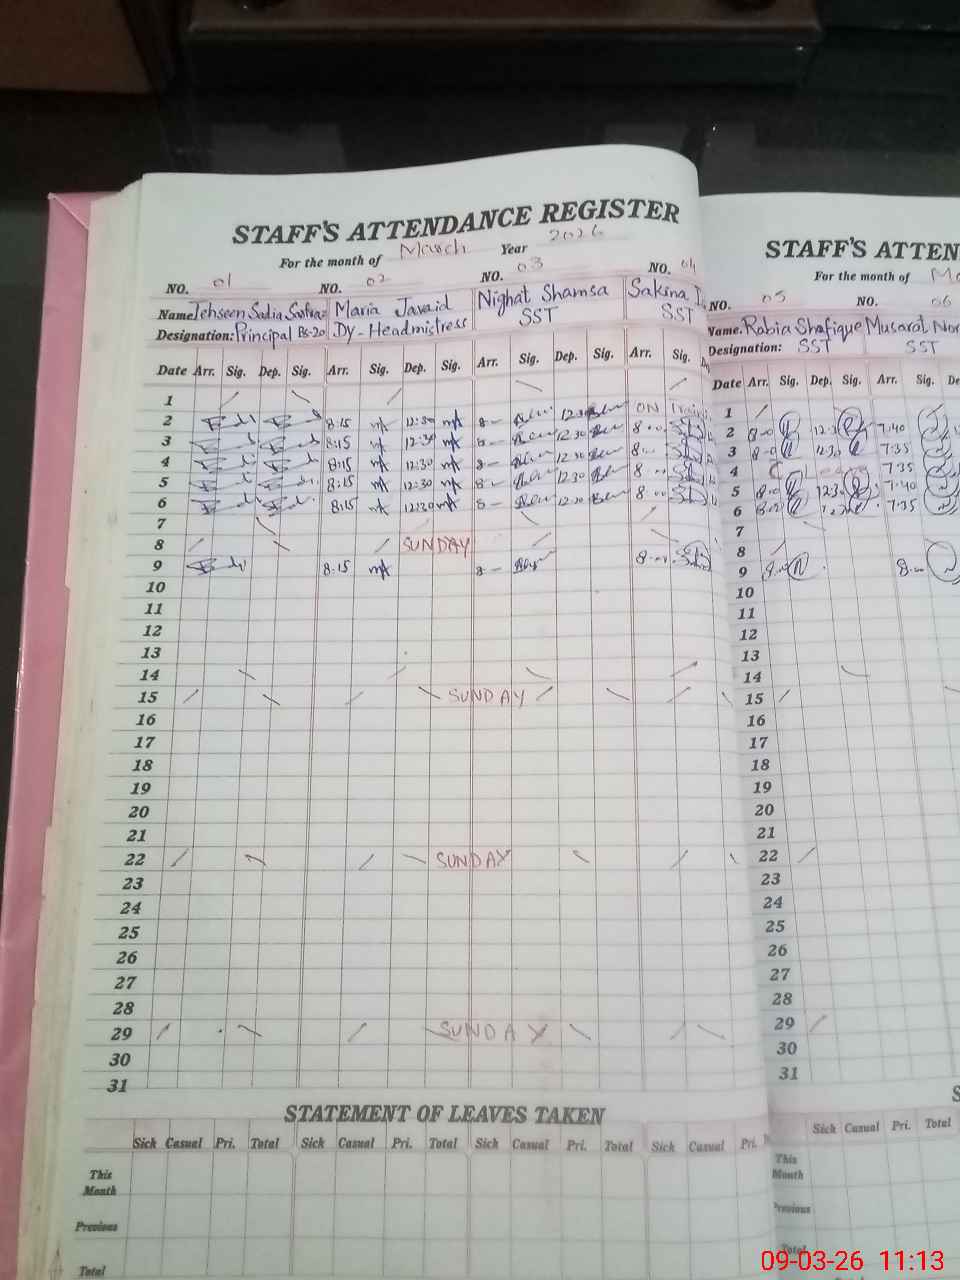 STAFF'S ATTENDANCE REGISTER
For the month of March Year 2026
NO. 01 NO. 02 NO. 03 NO. 04
Name Tehseen Sadia Maria Javaid Nighat Shamsa Sakina
Designation: Principal BS-20 DY-Headmistress SST SST
Date Arr. Sig. Dep. Sig. Arr. Sig. Dep. Sig. Arr. Sig. Dep. Sig. Arr. Sig.
1
2 8:15 12:30 8- 12:30 ON
3 8:15 12:30 8- 12:30 8:00
4 8:15 12:30 8- 12:30 8:00
5 8:15 12:30 8- 12:30 8:00
6 8:15 12:30 8- 12:30 8:00
7
8 SUNDAY
9 8.15 8- 8:00
10
11
12
13
14
15 SUNDAY
16
17
18
19
20
21
22 SUNDAY
23
24
25
26
27
28
29 SUNDAY
30
31
STATEMENT OF LEAVES TAKEN
Sick Casual Pri. Total Sick Casual Pri. Total Sick Casual Pri. Total Sick Casual Pri.
This Month
Previous
Total
STAFF'S ATTEN
For the month of
NO. 05 NO. 06
Name. Rabia Shafique Musarat
Designation: SST SST
Date Arr. Sig. Dep. Sig. Arr. Sig. De
1
2 8:00 12:30 7:40
3 8:00 12:30 7:35
4 7:35
5 8:00 12:30 7:40
6 8:00 7:35
7
8
9 8:00 8:00
10
11
12
13
14
15
16
17
18
19
20
21
22
23
24
25
26
27
28
29
30
31
Sick Casual Pri. Total
This Month
Previous
Total
09-03-26 11:13